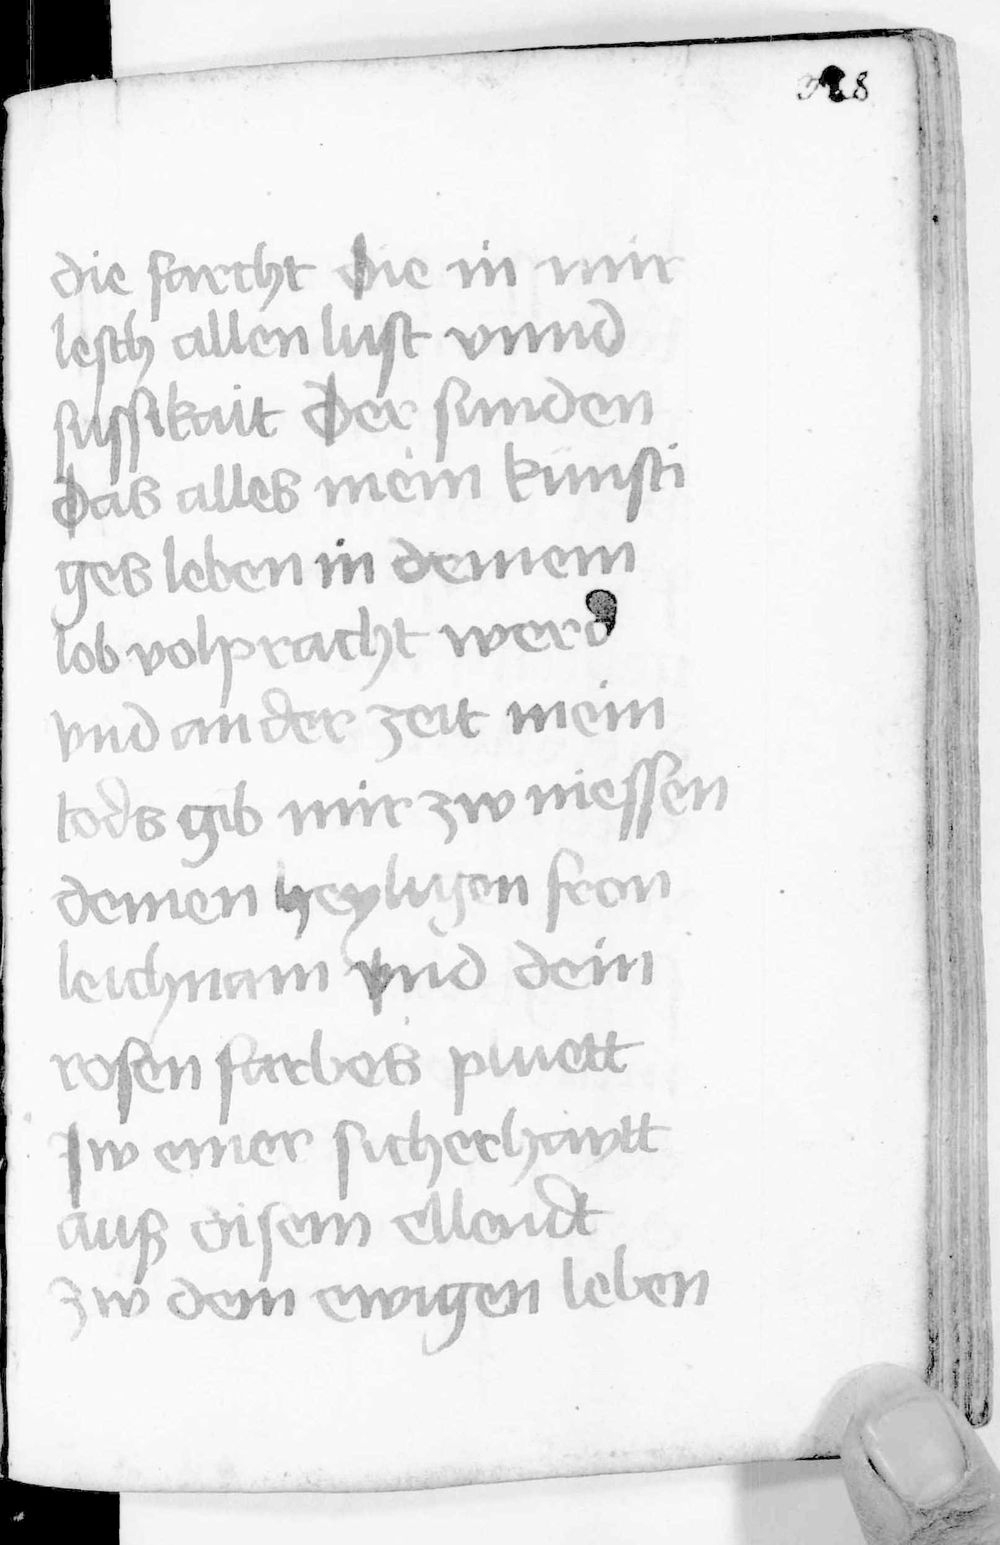 die farcht die in mir
lesch allen lust vnnd
sussikait der sunden
das alles mein kunfti
ges leben in deinem
lob volpracht werd
vnd an der zeit mein
tods gib mir zw niessen
deinen heyligen fron
leichnam vnd dein
rosen farbes pluett
Zw einer sicherhaytt
auß disem ellendt
zw dem ewigen leben